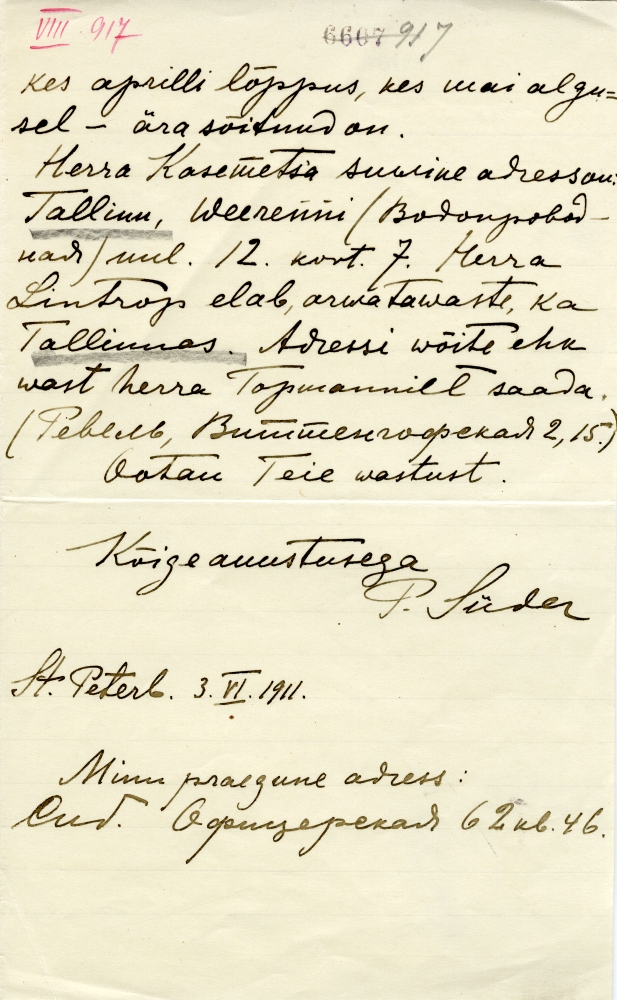 VIII 917
6607 917
kes aprilli lõppus, kes mai algu=
sel – ära sõitnud on.
Herra Kasemetsa suwine adress on:
Tallinn, Weerenni (Водопровод-
ная) uul. 12. kort. 7. Herra
Lintrop elab, arwatawaste, ka
Tallinnas. Adressi wõite ehk
wast herra Topmannilt saada.
(Ревель, Виттенгофская 2, 15.)
Ootan Teie wastust.
Kõige auustusega
P. Süder
St. Peterb. 3. VI. 1911.
Minu praegune adress:
Спб. Офицерская 62 кв. 46.